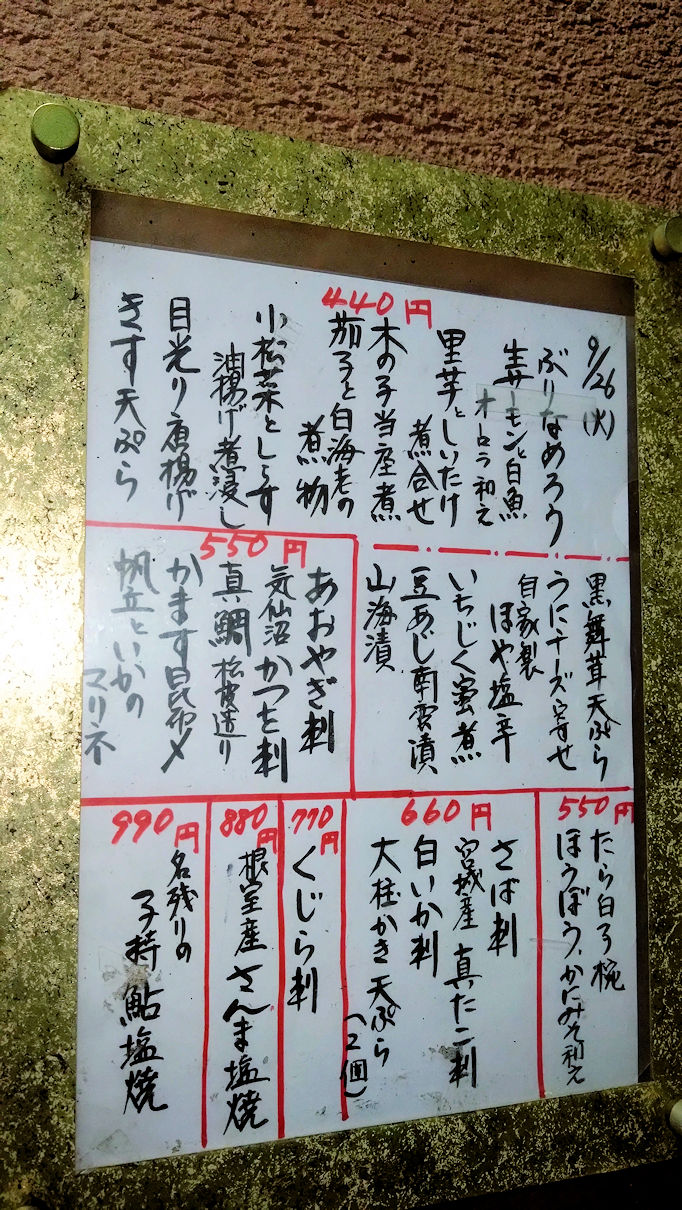 9/26(火)
440円
ぶりなめろう
生サーモンと白魚
オーロラ和え
里芋としいたけ
煮合せ
木の子当座煮
茄子と白海老の
煮物
小松菜としらす
油揚げ煮浸し
目光り唐揚げ
きす天ぷら
黒舞茸天ぷら
うにチーズ寄せ
自家製
ほや塩辛
いちじく蜜煮
豆あじ南蛮漬
山海漬
550円
あおやぎ刺
気仙沼かつを刺
真鯛松皮造り
かます昆布〆
帆立といかの
マリネ
550円
たら白子椀
ほうぼう、かにみそ和え
660円
さば刺
宮城産 真たこ刺
白いか刺
大粒かき天ぷら
(2個)
770円
くじら刺
880円
根室産さんま塩焼
990円
名残りの
子持鮎塩焼